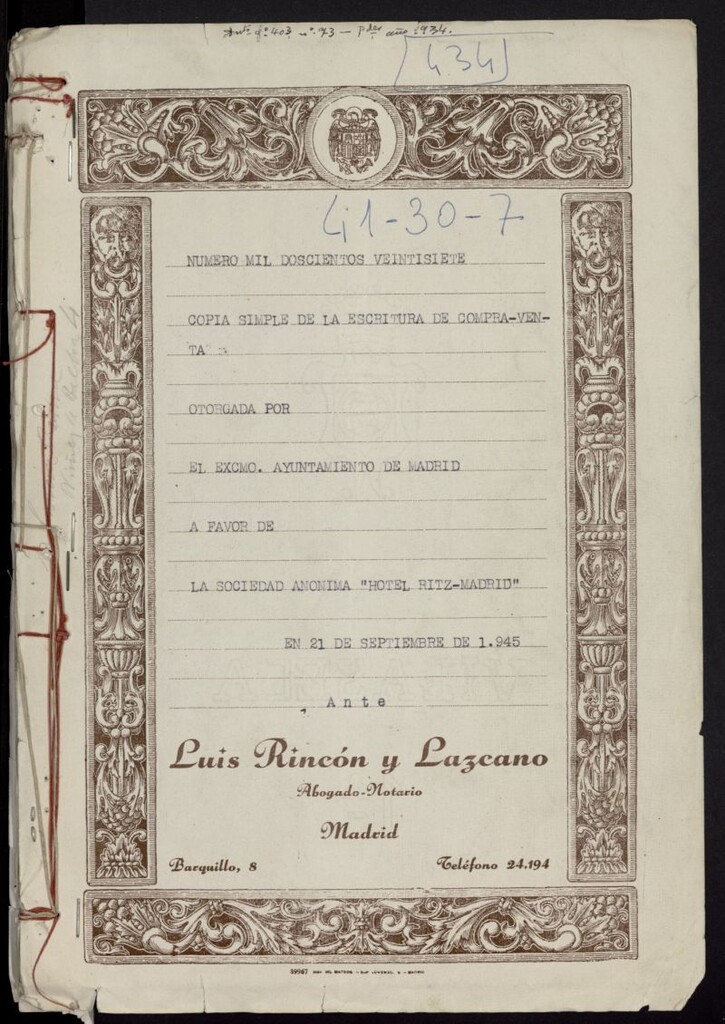 año 1934.
434
41-30-7
NUMERO MIL DOSCIENTOS VEINTISIETE
COPIA SIMPLE DE LA ESCRITURA DE COMPRA-VEN-
TA
OTORGADA POR
EL EXCMO. AYUNTAMIENTO DE MADRID
A FAVOR DE
LA SOCIEDAD ANONIMA "HOTEL RITZ-MADRID"
EN 21 DE SEPTIEMBRE DE 1.945
Ante
Luis Rincón y Lazcano
Abogado-Notario
Madrid
Barquillo, 8 Teléfono 24.194